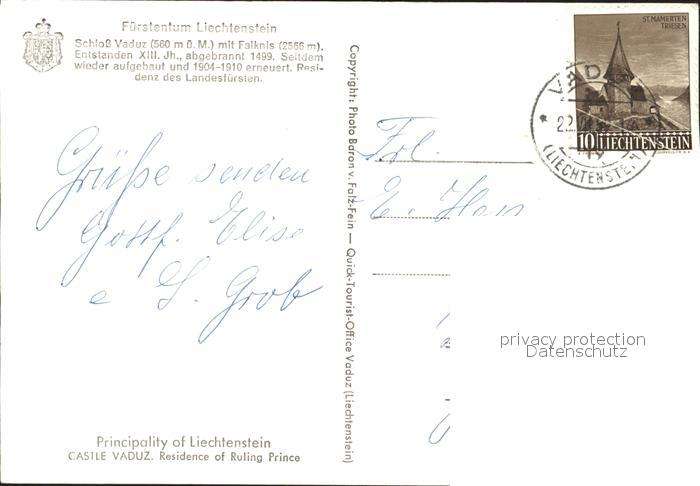 Fürstentum Liechtenstein
Schloß Vaduz (560 m ü. M.) mit Falknis (2566 m).
Entstanden XIII. Jh., abgebrannt 1499. Seitdem
wieder aufgebaut und 1904-1910 erneuert. Resi-
denz des Landesfürsten.
Grüße senden
Gottf. Elise
e G. Grob
Principality of Liechtenstein
CASTLE VADUZ. Residence of Ruling Prince
Copyright: Photo Baron v. Falz-Fein — Quick-Tourist-Office Vaduz (Liechtenstein)
ST. MAMERTEN
TRIESEN
10 LIECHTENSTEIN
VADUZ
22.
(LIECHTENSTEIN)
Frl.
E.
privacy protection
Datenschutz